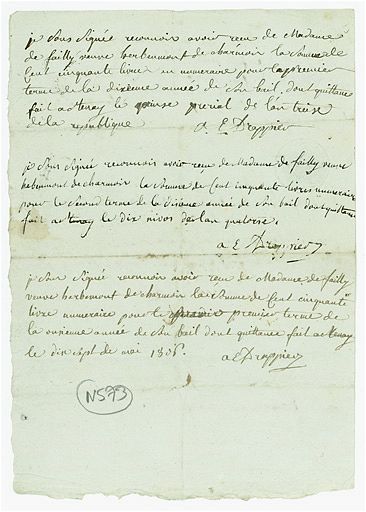 je Sous Signée reconnoir avoir reçu de Madame
de failly veuve herbemont de charmoir la Somme de
Cent cinquante livre en numeraire pour la premier
terme de la dixeme année de Son bail, dont quittance
fait a Stenay le quinse prerial de lan treise
de la republique
a E Drappier
je Sous Signée reconnoir avoir reçu de Madame de failly veuve
hebemont de charmoir la Somme de Cent cinquante livres numeraire
pour le Second terme de la dixeme année de Son bail dont quittance
fait a Stenay le dix nivos de lan quatorse.
a E Drappier
je Sous Signée reconnoir avoir reçu de Madame de failly
veuve herbemont de charmoir la Somme de Cent cinquante
livre numeraire pour le premier terme de
la onzieme année de Son bail dont quittance fait a Stenay
le dix Sept de mai 1806.
a E Drappier
N573